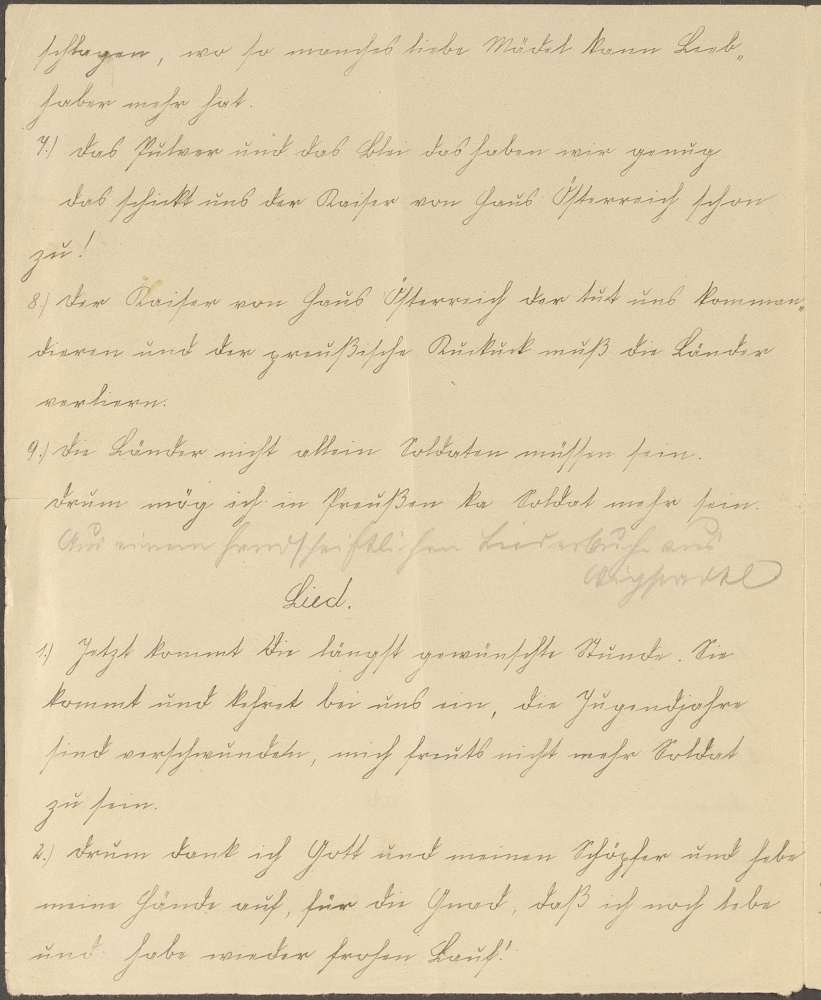 schlagen, wo so manches liebe Mädel kann Lieb„
haber mehr hat.
7.) Das Pulver und das Blei das haben wir genug
das schickt uns der Kaiser von Haus Österreich schon
zu!
8.) Der Kaiser von Haus Österreich der tut uns komman„
dieren und der preußische Kuckuck muß die Länder
verliern.
9.) Die Länder nicht allein Soldaten müssen sein.
Drum mög ich in Preußen ka Soldat mehr sein.
Aus einem handschriftlichen Liederbuche aus
Lied.
1.) Jetzt kommt die längst gewünschte Stunde. Sie
kommt und kehret bei uns ein, die Jugendjahre
sind verschwunden, mich freuts nicht mehr Soldat
zu sein.
2.) Drum dank ich Gott und meinen Schöpfer und hebe
meine Hände auf, für die Gnad, daß ich noch lebe
und habe wieder frohen Lauf!